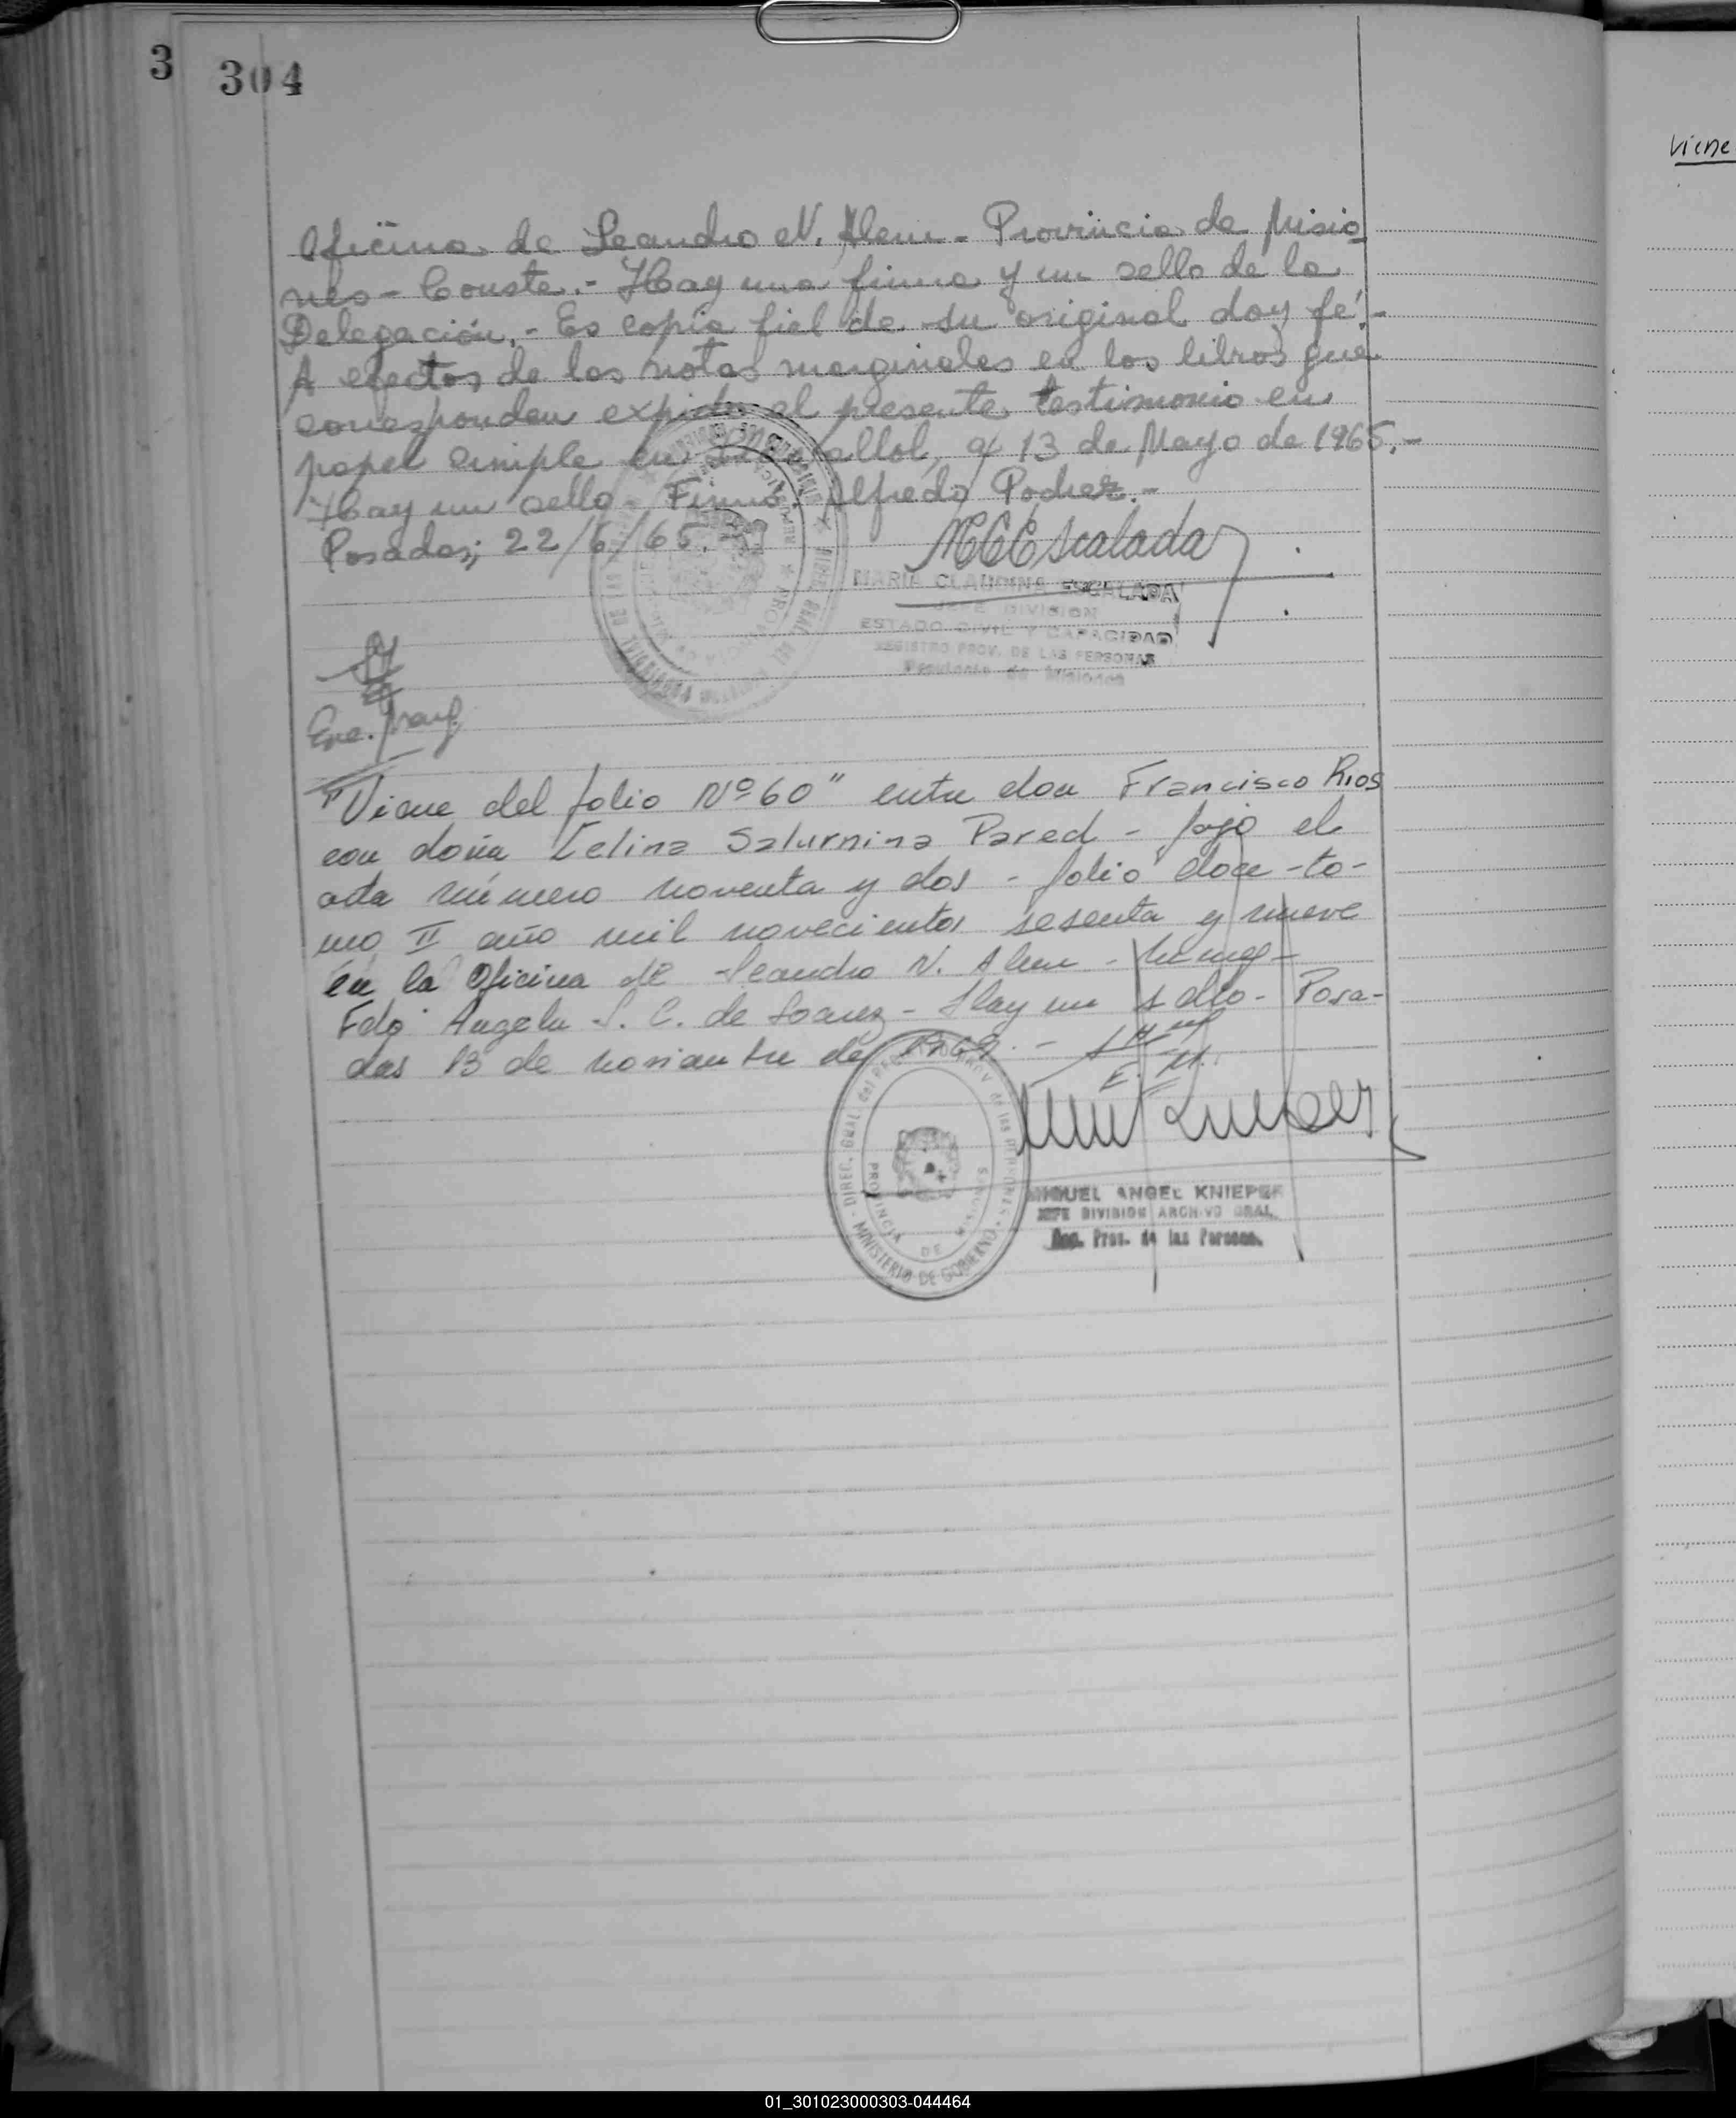 3
304
Viene
Oficina de Leandro N. Alem - Provincia de Misio
nes - Conste.- Hay una firma y un sello de la
Delegación.- Es copia fiel de su original doy fé.-
A efectos de las notas marginales en los libros que
corresponden expido el presente testimonio en
papel simple en allol, a 13 de Mayo de 1965.-
Hay un sello - Firma: Alfredo Podrez.-
Posadas; 22/6/65.
MCEscalada
MARIA CLAUDINA ESCALADA
JEFE DIVISION
ESTADO CIVIL Y CAPACIDAD
REGISTRO PROV. DE LAS PERSONAS
de Misiones
"Viene del folio Nº 60" entre don Francisco Rios
con doña Celina Saturnina Pared - bajo el
acta número noventa y dos - folio doce - to-
mo II año mil novecientos sesenta y nueve
en la Oficina de Leandro N. Alem -
Fdo Angela S. C. de Soarez - Hay un sello - Posa-
das 13 de noviembre de 1969.-
E. M.
DIREC. GRAL del REG. PROV de las PERSONAS
PROVINCIA DE MISIONES
MINISTERIO DE GOBIERNO
MIGUEL ANGEL KNIEPER
JEFE DIVISION ARCHIVO GRAL.
Reg. Prov. de las Personas.
01_301023000303-044464